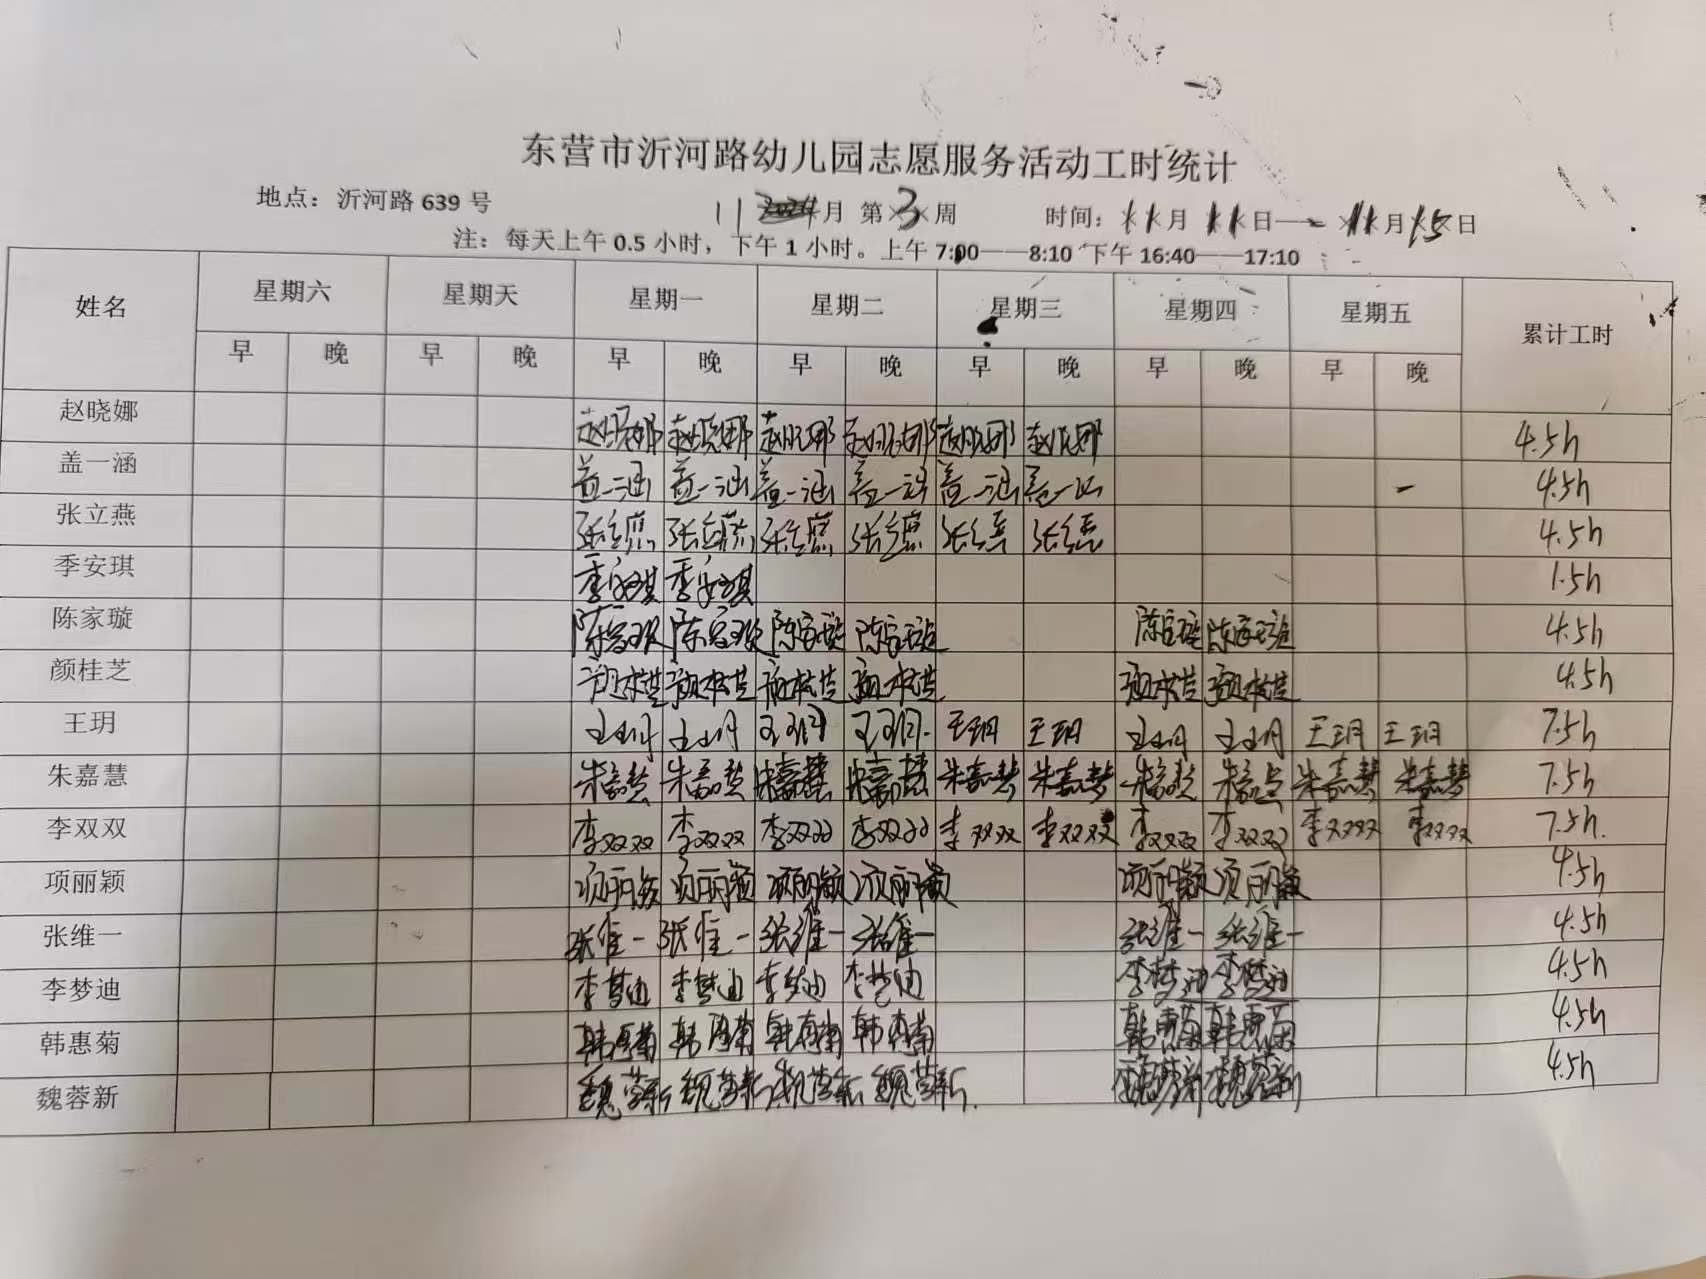 东营市沂河路幼儿园志愿服务活动工时统计
地点：沂河路 639 号 11 月 第 3 周 时间：11 月 11 日—— 11 月 15 日
注：每天上午 0.5 小时，下午 1 小时。上午 7:00——8:10 下午 16:40——17:10
姓名 星期六 星期天 星期一 星期二 星期三 星期四 星期五 累计工时
早 晚 早 晚 早 晚 早 晚 早 晚 早 晚 早 晚
赵晓娜 赵晓娜 赵晓娜 赵晓娜 赵晓娜 赵晓娜 赵晓娜 4.5h
盖一涵 盖一涵 盖一涵 盖一涵 盖一涵 盖一涵 盖一涵 4.5h
张立燕 张立燕 张立燕 张立燕 张立燕 张立燕 张立燕 4.5h
季安琪 季安琪 季安琪 1.5h
陈家璇 陈家璇 陈家璇 陈家璇 陈家璇 陈家璇 陈家璇 4.5h
颜桂芝 颜桂芝 颜桂芝 颜桂芝 颜桂芝 颜桂芝 颜桂芝 4.5h
王玥 王玥 王玥 王玥 王玥 王玥 王玥 王玥 王玥 王玥 王玥 7.5h
朱嘉慧 朱嘉慧 朱嘉慧 朱嘉慧 朱嘉慧 朱嘉慧 朱嘉慧 朱嘉慧 朱嘉慧 朱嘉慧 朱嘉慧 7.5h
李双双 李双双 李双双 李双双 李双双 李双双 李双双 李双双 李双双 李双双 李双双 7.5h.
项丽颖 项丽颖 项丽颖 项丽颖 项丽颖 项丽颖 项丽颖 4.5h
张维一 张维一 张维一 张维一 张维一 张维一 张维一 4.5h
李梦迪 李梦迪 李梦迪 李梦迪 李梦迪 李梦迪 李梦迪 4.5h
韩惠菊 韩惠菊 韩惠菊 韩惠菊 韩惠菊 韩惠菊 韩惠菊 4.5h
魏蓉新 魏蓉新 魏蓉新 魏蓉新 魏蓉新 魏蓉新 魏蓉新 4.5h